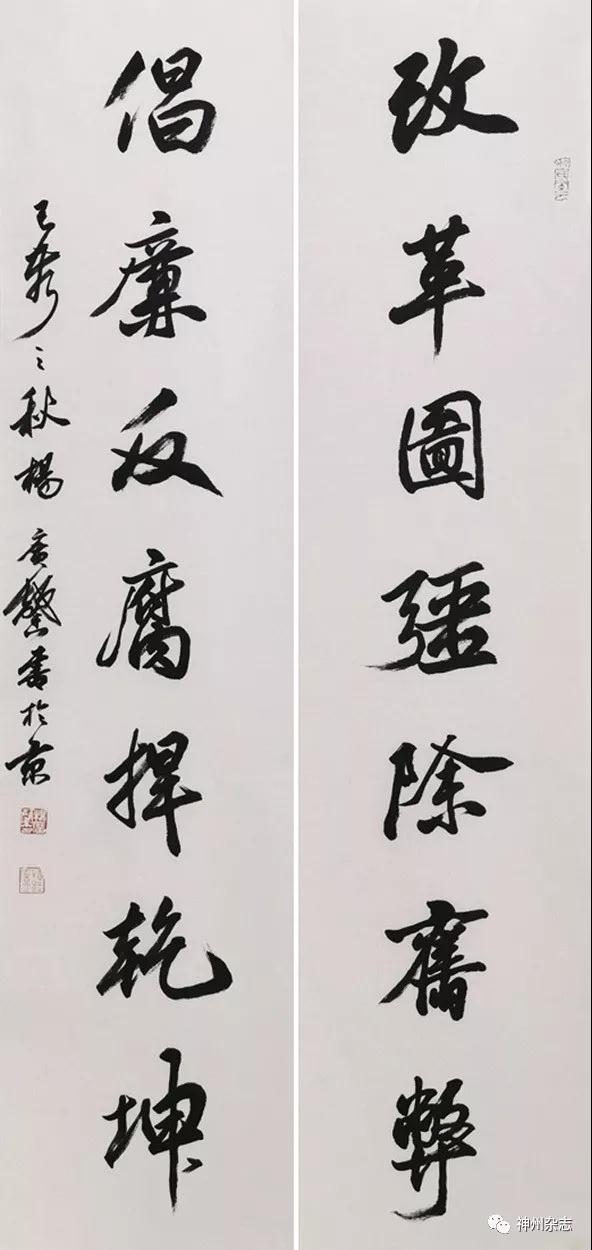 改革圖彊除舊弊
倡廉反腐捍乾坤
己亥之秋楊廣馨書於京
神州杂志